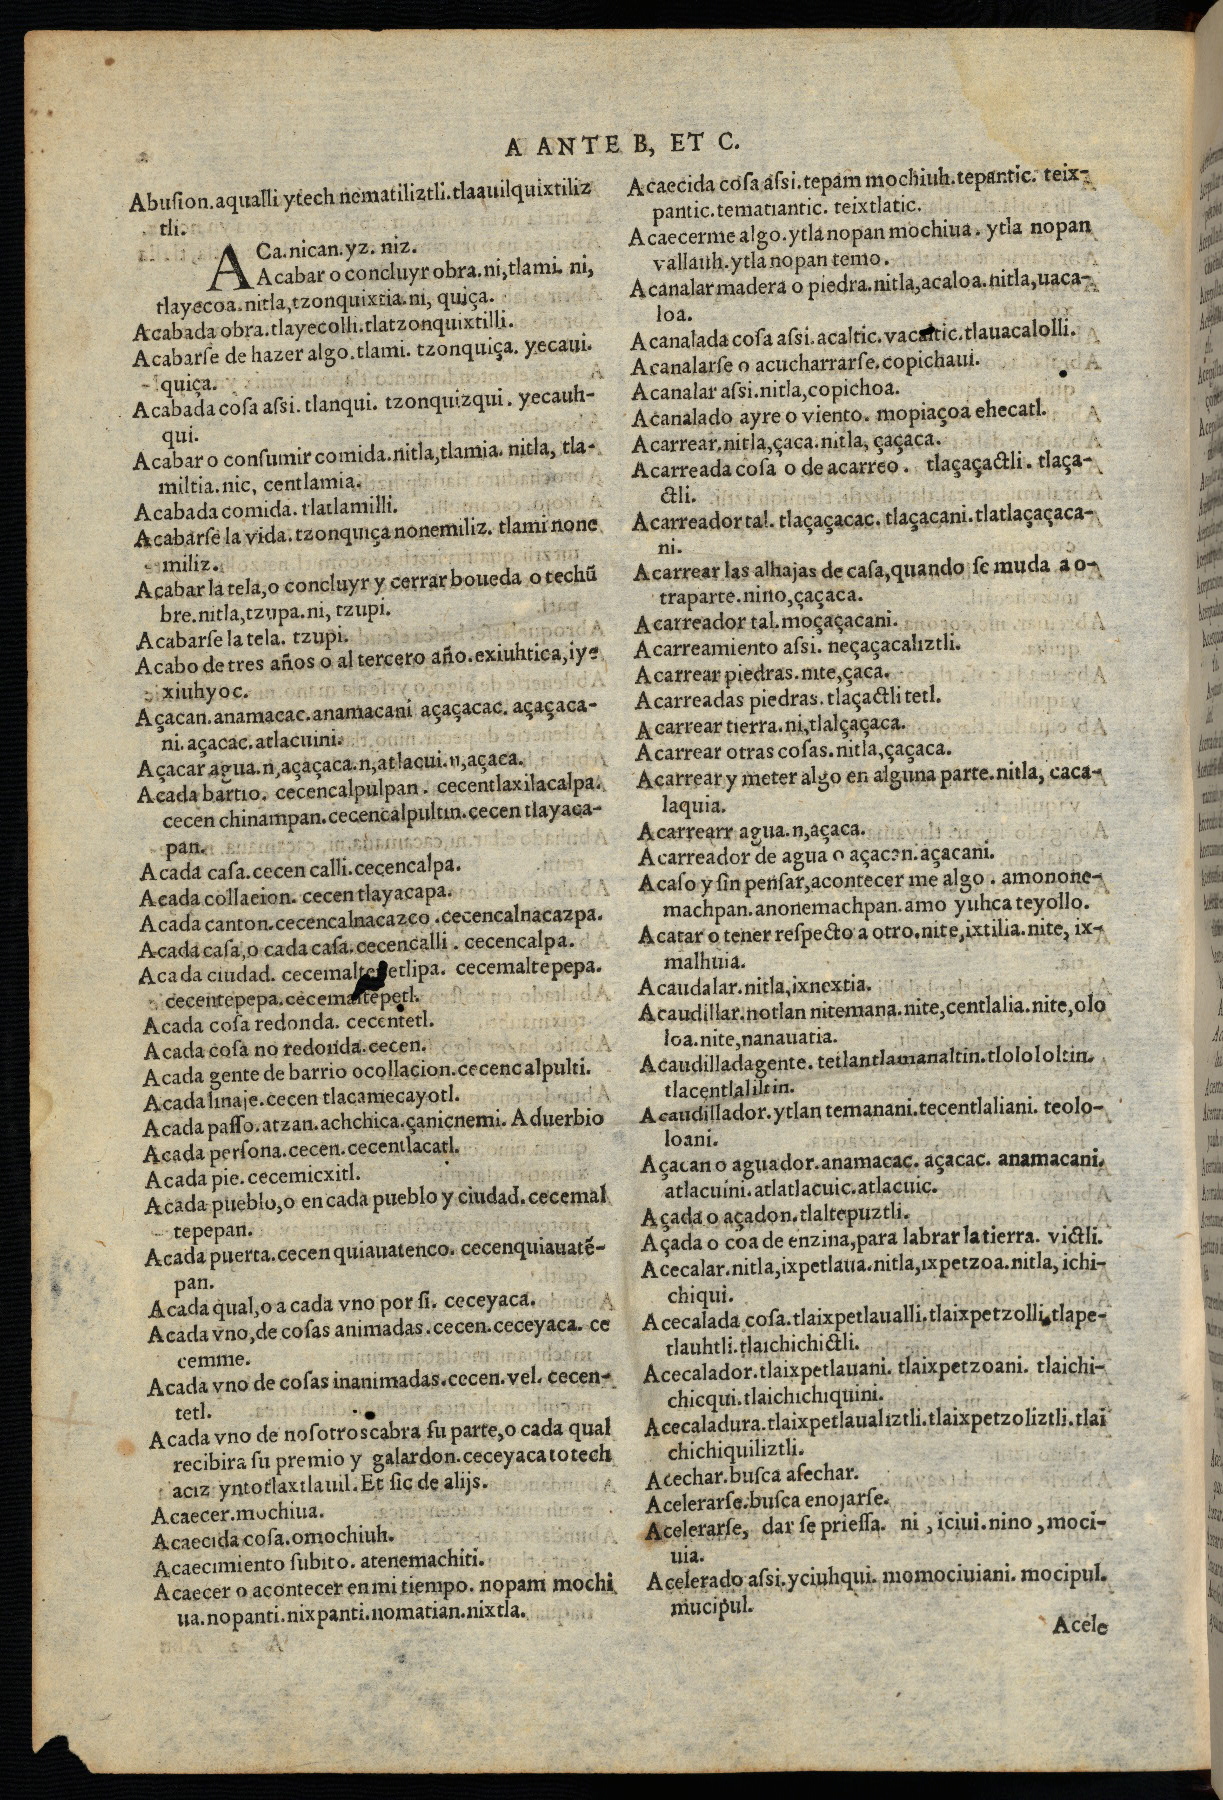 A ANTE B, ET C.
Abusion.aqualli ytech nematiliztli.tlaauilquixtiliz
tli.
ACa.nican.yz. niz.
Acabar o concluyr obra.ni,tlami. ni,
tlayecoa.nitla,tzonquixtia.ni, quiça.
Acabada obra.tlayecolli.tlatzonquixtilli.
Acabarse de hazer algo.tlami. tzonquiça. yecaui.
quiça.
Acabada cosa assi. tlanqui. tzonquizqui. yecauh-
qui.
Acabar o consumir comida.nitla,tlamia. nitla, tla-
miltia.nic, centlamia.
Acabada comida. tlatlamilli.
Acabarse la vida. tzonquiça nonemiliz. tlami none
miliz.
Acabar la tela,o concluyr y cerrar boueda o techũ
bre.nitla,tzupa.ni, tzupi.
Acabarse la tela. tzupi.
Acabo de tres años o al tercero año.exiuhtica,iye
xiuhyoc.
Açacan.anamacac.anamacani açaçacac. açaçaca-
ni.açacac.atlacuini.
Açacar agua.n,açaçaca.n,atlacui.n,açaca.
Acada barrio. cecencalpulpan. cecentlaxilacalpa.
cecen chinampan.cecencalpultin.cecen tlayaca-
pan.
Acada casa.cecen calli.cecencalpa.
Acada collacion. cecen tlayacapa.
Acada canton.cecencalnacazco.cecencalnacazpa.
Acada casa,o cada casa.cecencalli. cecencalpa.
Acada ciudad. cecemaltepetlipa. cecemaltepepa.
cecentepepa.cecemaltepetl.
Acada cosa redonda. cecentetl.
Acada cosa no redonda.cecen.
Acada gente de barrio ocollacion.cecencalpulti.
Acada linaje.cecen tlacamecayotl.
Acada passo.atzan.achchica.çanicnemi. Aduerbio
Acada persona.cecen.cecentlacatl.
Acada pie.cecemicxitl.
Acada pueblo,o en cada pueblo y ciudad.cecemal
tepepan.
Acada puerta.cecen quiauatenco. cecenquiauatē-
pan.
Acada qual,o a cada vno por si. ceceyaca.
Acada vno,de cosas animadas.cecen.ceceyaca. ce
cemme.
Acada vno de cosas inanimadas.cecen.vel. cecen-
tetl.
Acada vno de nosotroscabra su parte,o cada qual
recibira su premio y galardon.ceceyaca totech
aciz yntotlaxtlauil.Et sic de alijs.
Acaecer.mochiua.
Acaecida cosa.omochiuh.
Acaecimiento subito. atenemachiti.
Acaecer o acontecer en mi tiempo. nopam mochi
ua.nopanti.nixpanti.nomatian.nixtla.
Acaecida cosa assi.tepam mochiuh.tepantic. teix-
pantic.tematiantic. teixtlatic.
Acaecerme algo.ytla nopan mochiua. ytla nopan
vallauh.ytla nopan temo.
Acanalar madera o piedra.nitla,acaloa.nitla,uaca-
loa.
Acanalada cosa assi.acaltic.vacaltic.tlauacalolli.
Acanalarse o acucharrarse.copichaui.
Acanalar assi.nitla,copichoa.
Acanalado ayre o viento. mopiaçoa ehecatl.
Acarrear.nitla,çaca.nitla, çaçaca.
Acarreada cosa o de acarreo. tlaçaçactli. tlaça-
ctli.
Acarreador tal. tlaçaçacac. tlaçacani.tlatlaçaçaca-
ni.
Acarrear las alhajas de casa,quando se muda a o-
traparte.nino,çaçaca.
Acarreador tal.moçaçacani.
Acarreamiento assi. neçaçacaliztli.
Acarrear piedras.nite,çaca.
Acarreadas piedras.tlaçactli tetl.
Acarrear tierra.ni,tlalçaçaca.
Acarrear otras cosas.nitla,çaçaca.
Acarrear y meter algo en alguna parte.nitla, caca-
laquia.
Acarrearr agua.n,açaca.
Acarreador de agua o açacan.açacani.
Acaso y sin pensar,acontecer me algo. amonone-
machpan.anonemachpan.amo yuhca teyollo.
Acatar o tener respecto a otro.nite,ixtilia.nite, ix-
malhuia.
Acaudalar.nitla,ixnextia.
Acaudillar.notlan nitemana.nite,centlalia.nite,olo
loa.nite,nanauatia.
Acaudilladagente. tetlantlamanaltin.tlolololtin.
tlacentlaliltin.
Acaudillador.ytlan temanani.tecentlaliani. teolo-
loani.
Açacan o aguador.anamacac. açacac. anamacani.
atlacuini.atlatlacuic.atlacuic.
Açada o açadon.tlaltepuztli.
Açada o coa de enzina,para labrar la tierra. victli.
Acecalar.nitla,ixpetlaua.nitla,ixpetzoa.nitla, ichi-
chiqui.
Acecalada cosa.tlaixpetlaualli.tlaixpetzolli.tlape-
tlauhtli.tlaichichictli.
Acecalador.tlaixpetlauani. tlaixpetzoani. tlaichi-
chicqui.tlaichichiquini.
Acecaladura.tlaixpetlaualiztli.tlaixpetzoliztli.tlai
chichiquiliztli.
Acechar.busca asechar.
Acelerarse.busca enojarse.
Acelerarse, dar se priessa. ni, iciui.nino, moci-
uia.
Acelerado assi.yciuhqui. momociuiani. mocipul.
mucipul.
Acele